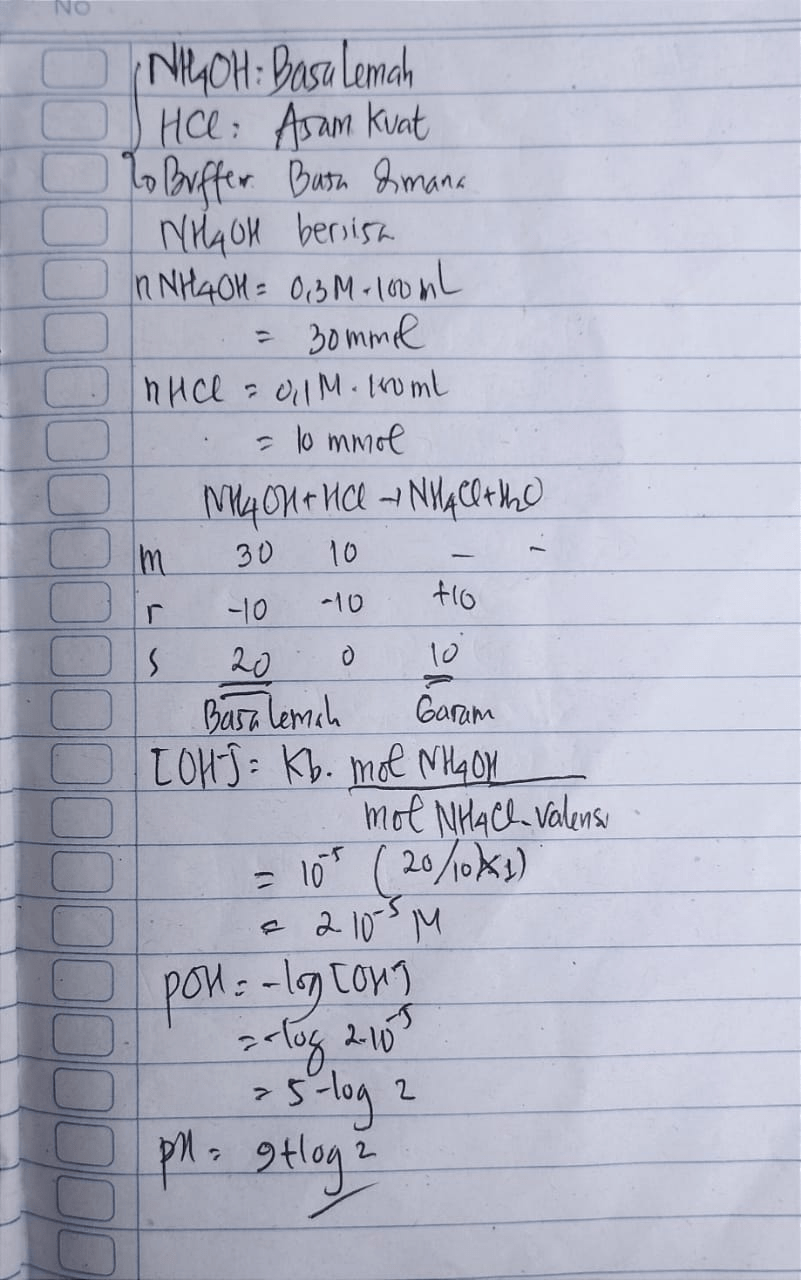 NO
NH4OH : Basa Lemah
HCl : Asam Kuat
↳ Buffer Basa dimana
NH4OH bersisa
n NH4OH = 0,3 M . 100 mL
= 30 mmol
n HCl = 0,1 M . 100 ml
= 10 mmol
NH4OH + HCl → NH4Cl + H2O
m 30 10 - -
r -10 -10 +10
s 20 0 10
Basa lemah Garam
[OH-] = Kb . mol NH4OH
mol NH4Cl . Valensi
= 10^-5 (20/10 x 1)
= 2 10^-5 M
pOH = -log [OH-]
= -log 2.10^-5
= 5 - log 2
pH = 9 + log 2